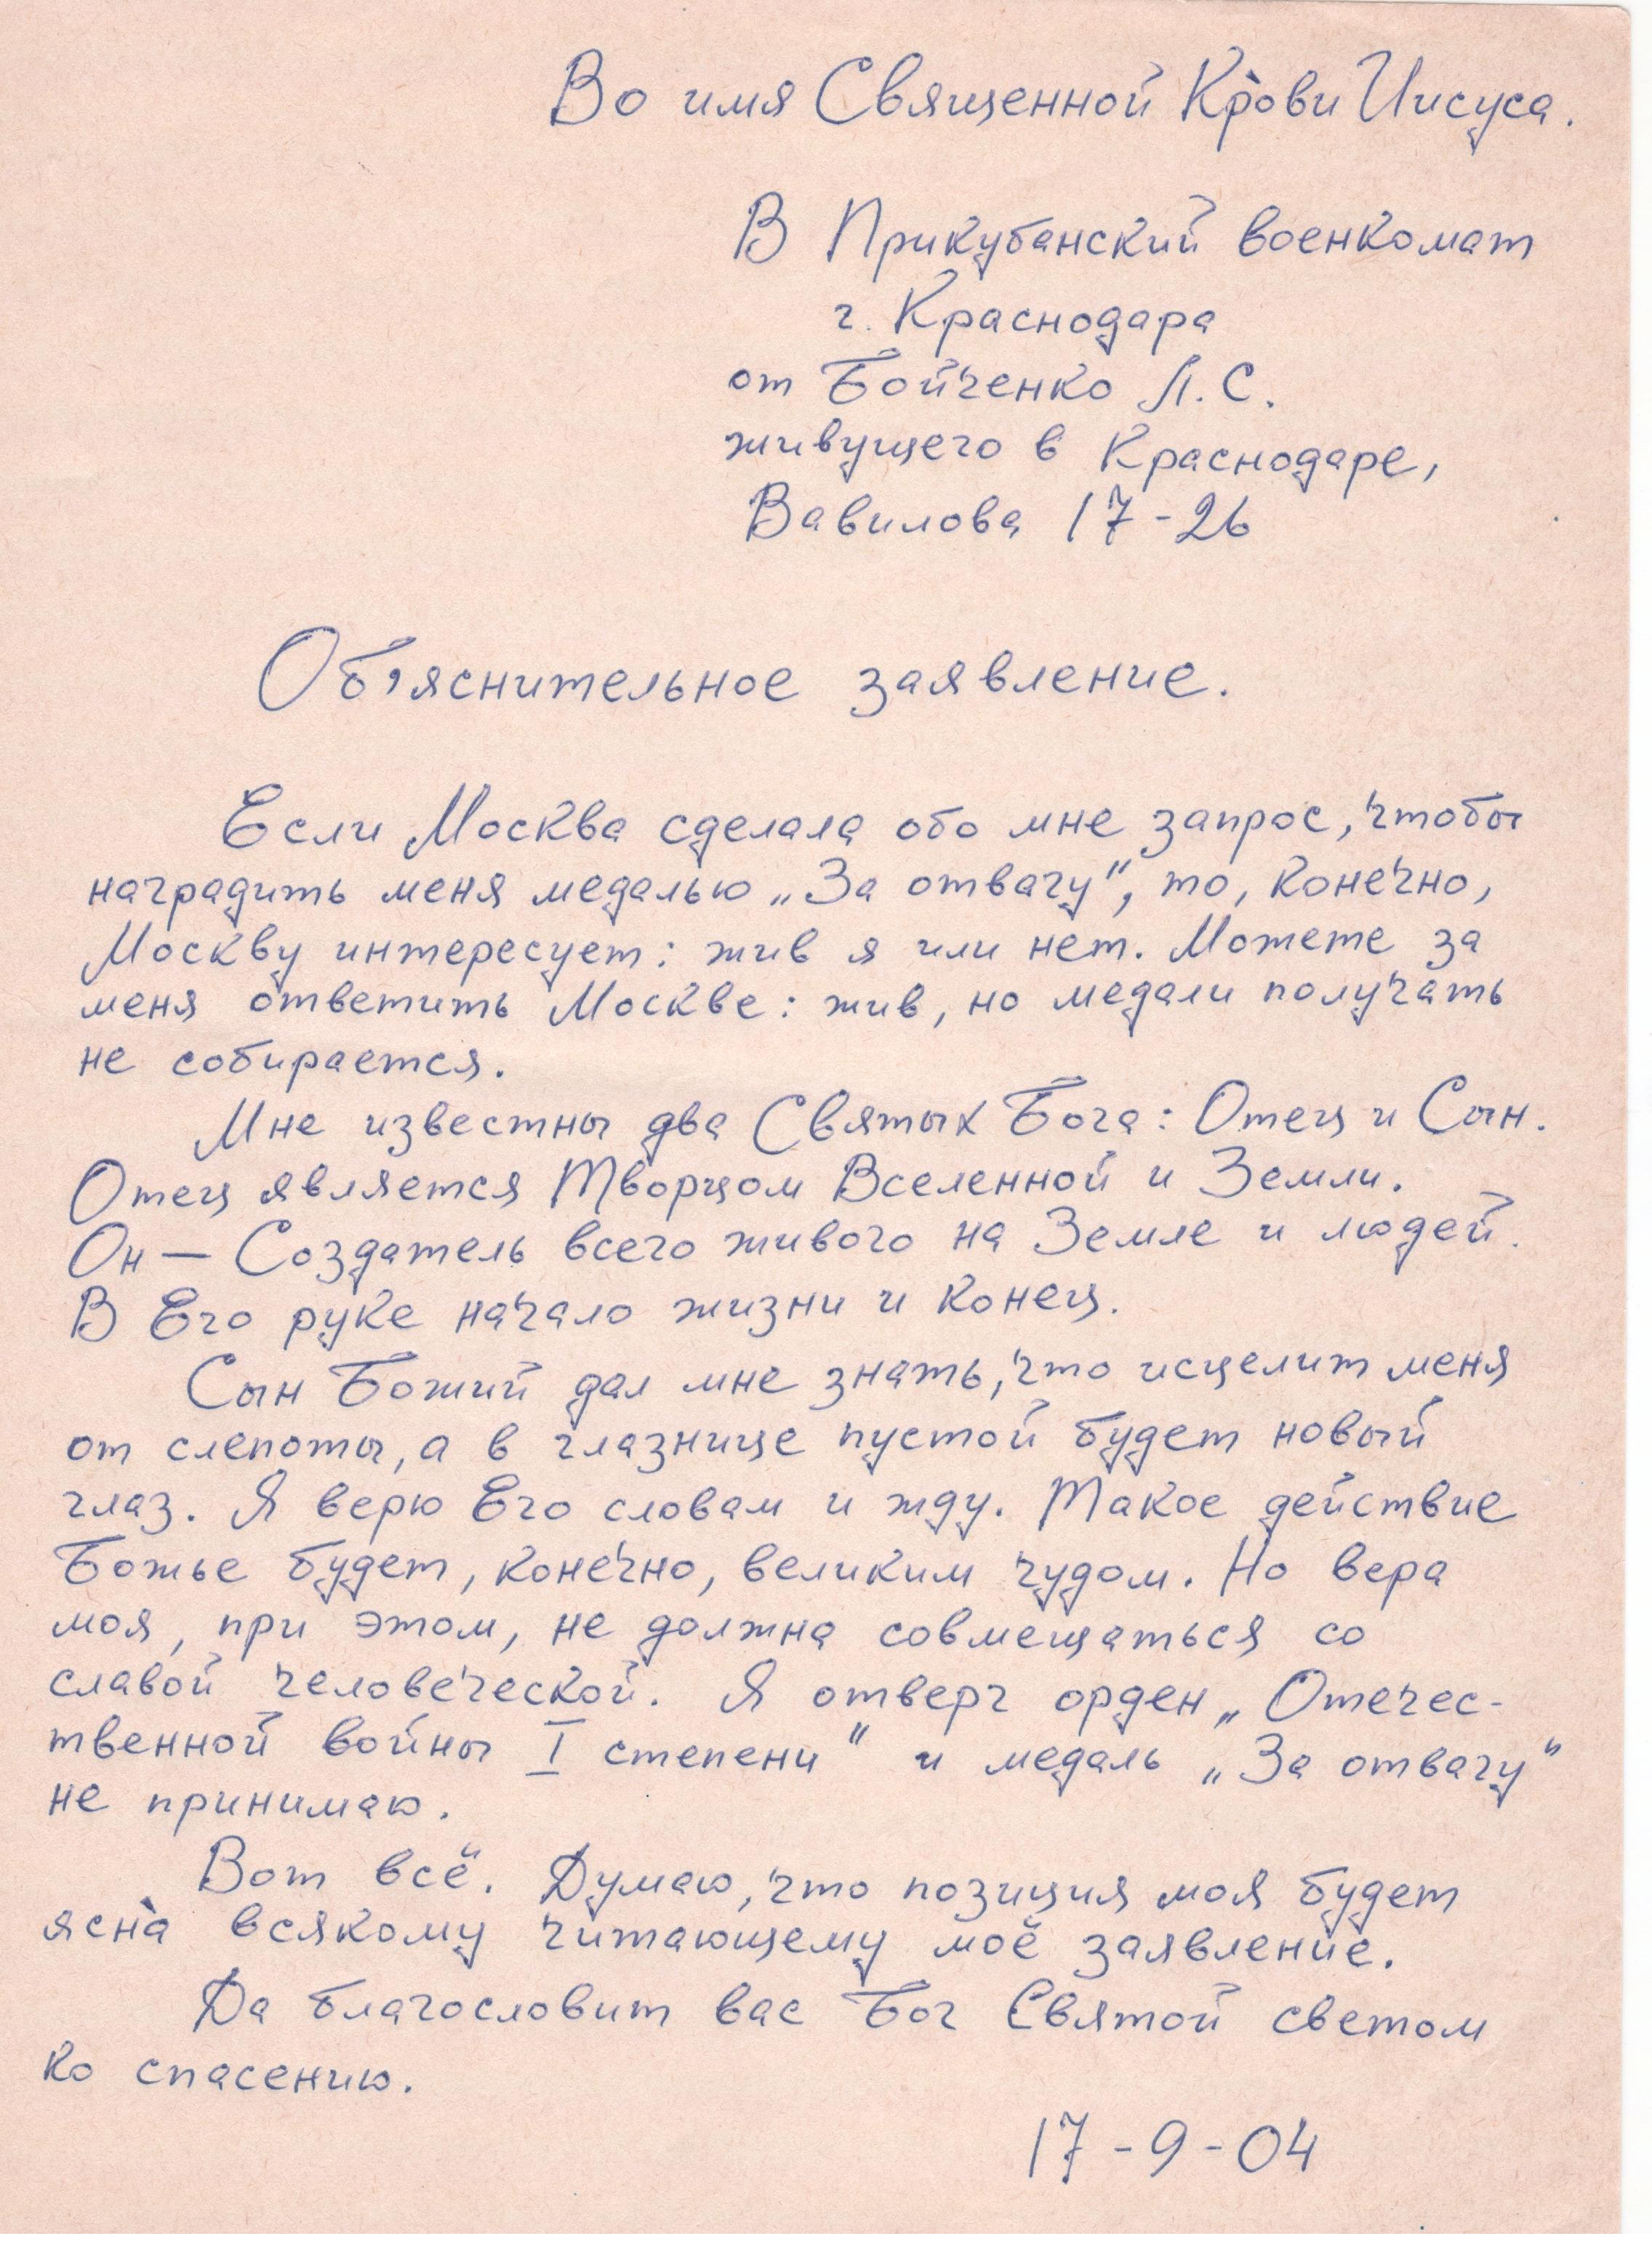 Во имя Священной Крови Иисуса.
В Прикубанский военкомат
г. Краснодара
от Бойченко Л.С.
живущего в Краснодаре,
Вавилова 17-26
Об'яснительное заявление.
Если Москва сделала обо мне запрос, чтобы
наградить меня медалью „За отвагу“, то, конечно,
Москву интересует: жив я или нет. Можете за
меня ответить Москве: жив, но медали получать
не собирается.
Мне известны два Святых Бога: Отец и Сын.
Отец является Творцом Вселенной и Земли.
Он — Создатель всего живого на Земле и людей.
В Его руке начало жизни и конец.
Сын Божий дал мне знать, что исцелит меня
от слепоты, а в глазнице пустой будет новый
глаз. Я верю Его словам и жду. Такое действие
Божье будет, конечно, великим чудом. Но вера
моя, при этом, не должна совмещаться со
славой человеческой. Я отверг орден „Отечес-
твенной войны I степени“ и медаль „За отвагу“
не принимаю.
Вот всё. Думаю, что позиция моя будет
ясна всякому читающему моё заявление.
Да благословит вас Бог Святой светом
ко спасению.
17-9-04